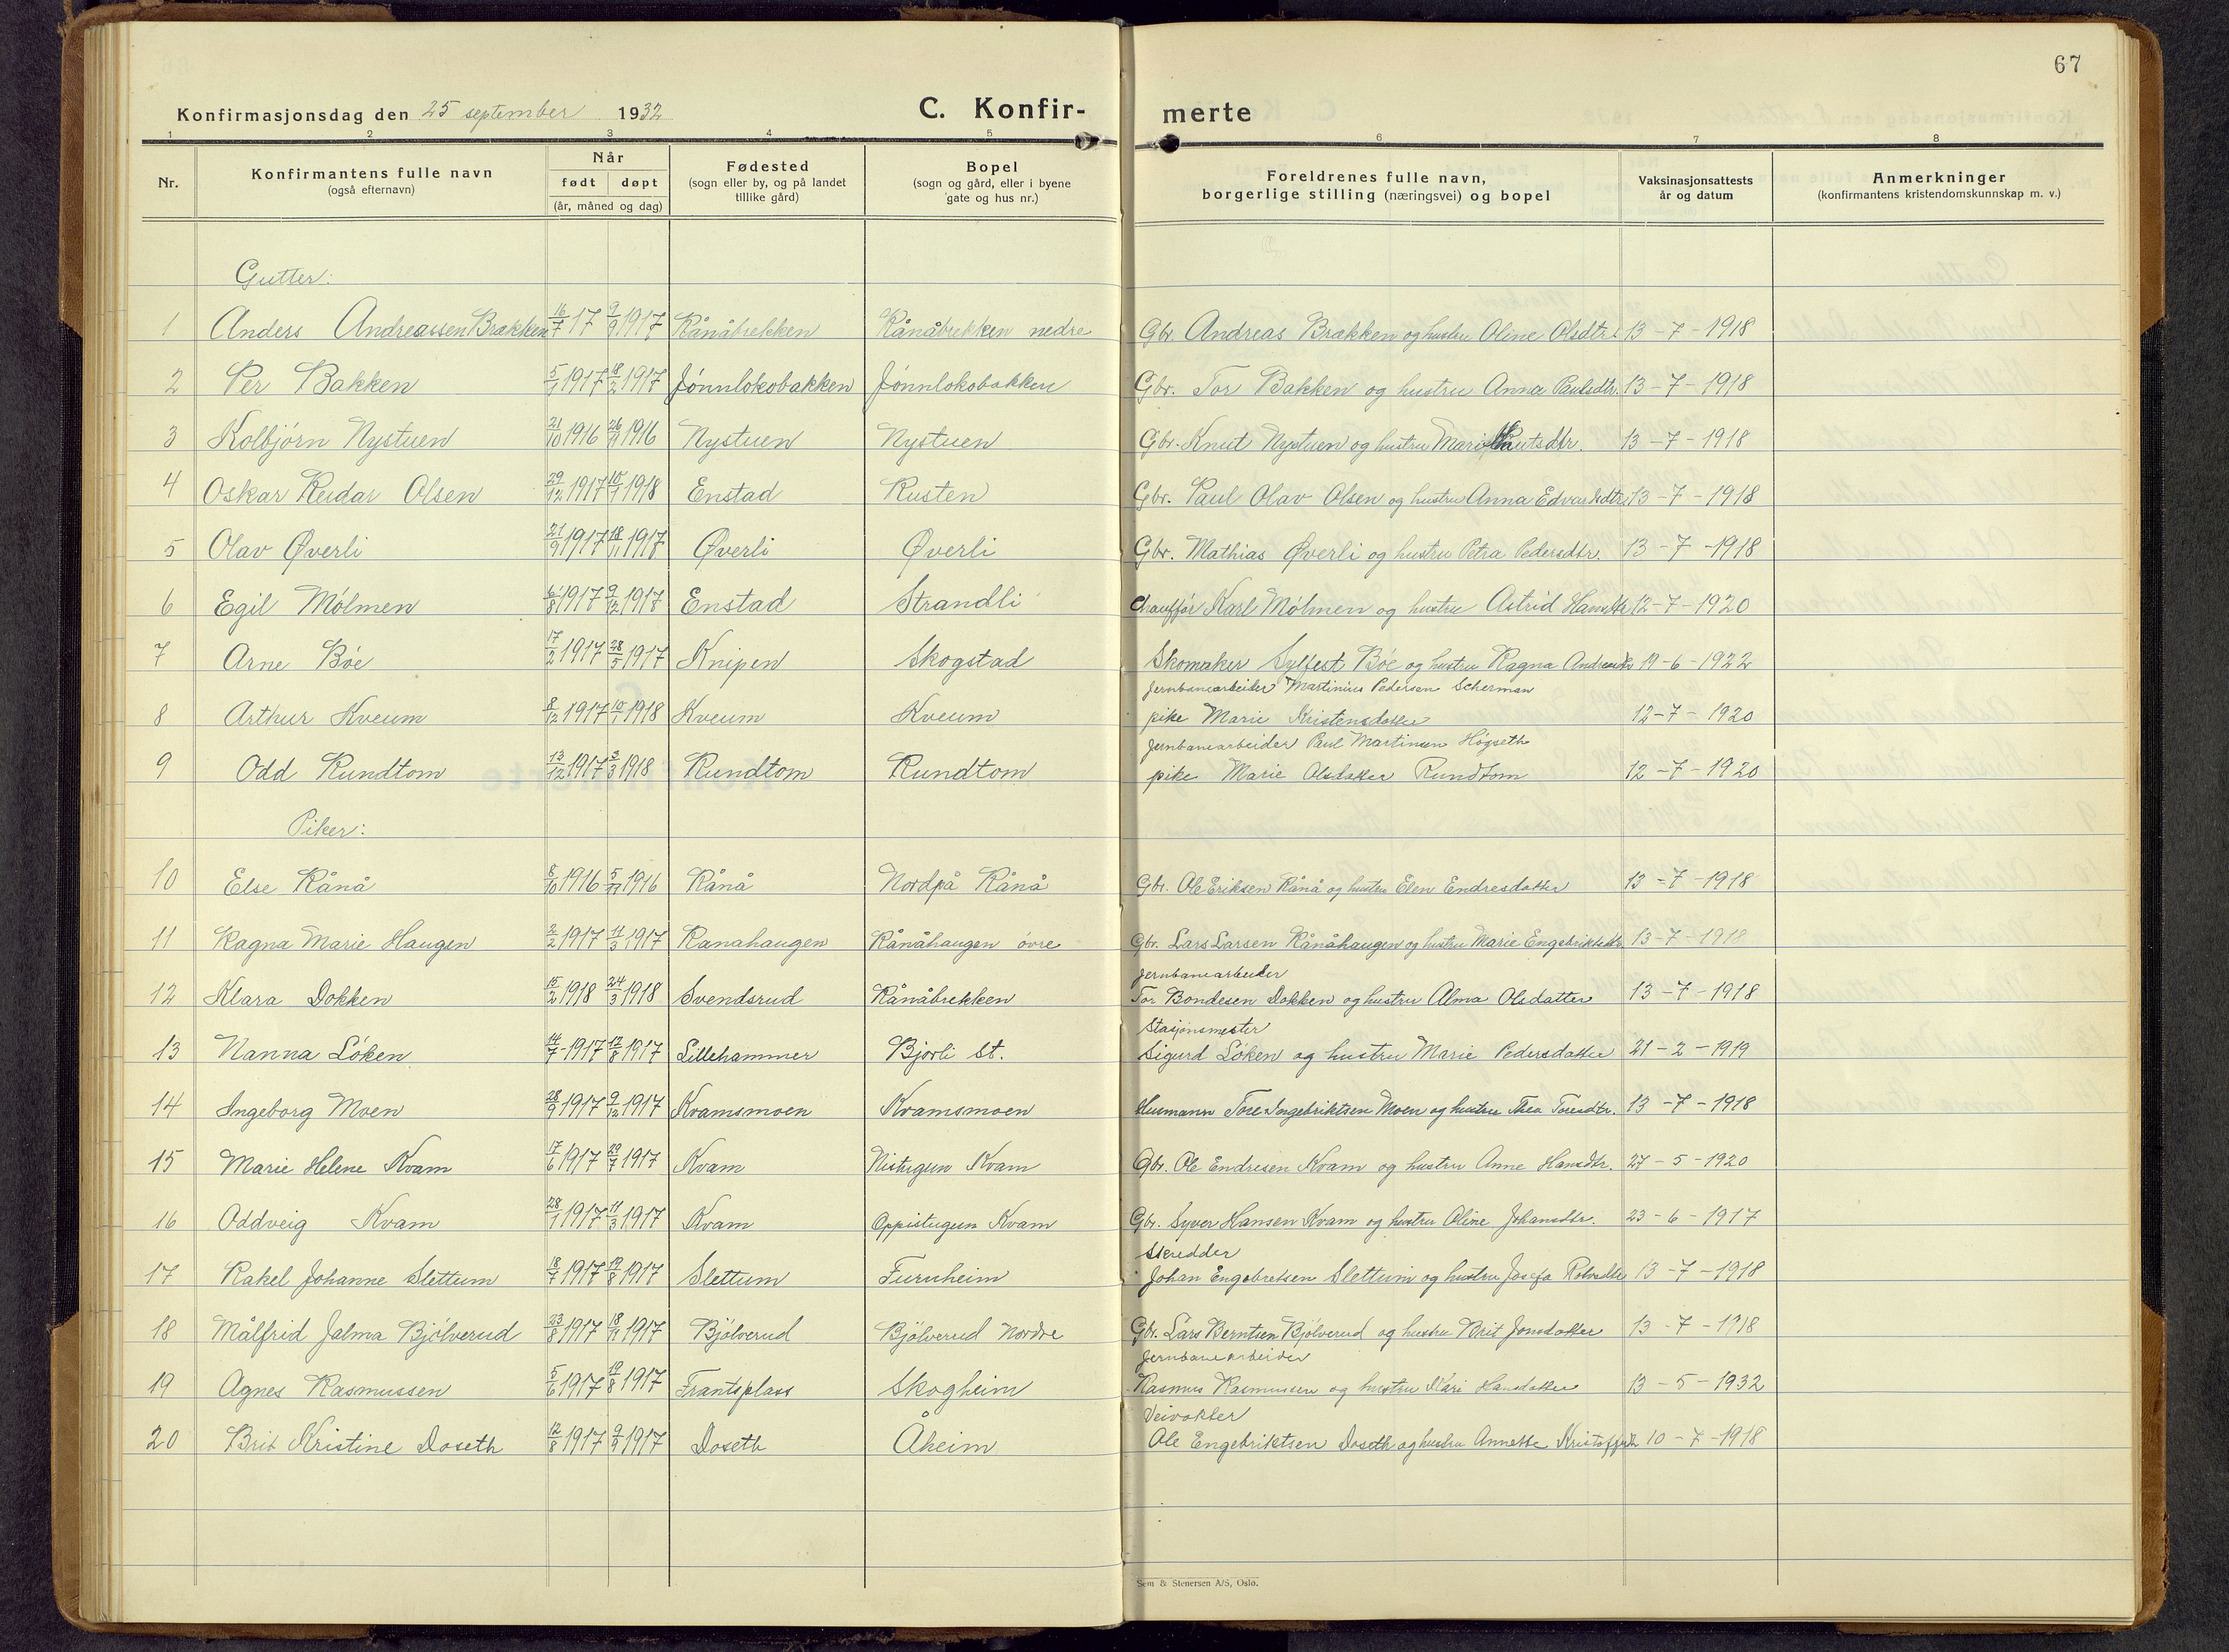 67
Konfirmasjonsdag den 25 september 1932 C. Konfir- merte
1 2 3 4 5 6 7 8
Nr. Konfirmantens fulle navn (også efternavn) Når født døpt (år, måned og dag) Fødested (sogn eller by, og på landet tillike gård) Bopel (sogn og gård, eller i byene gate og hus nr.) Foreldrenes fulle navn, borgerlige stilling (næringsvei) og bopel Vaksinasjonsattests år og datum Anmerkninger (konfirmantens kristendomskunnskap m. v.)
Gutter:
1 Anders Andreassen Brækken 16/7 17 9/9 1917 Rånåbrekken Rånåbrekken nedre Gbr. Andreas Brækken og hustru Oline Olsdtr. 13-7-1918
2 Per Bakken 5/1 1917 18/2 1917 Jønnlokobakken Jønnlokobakken Gbr. Tor Bakken og hustru Anna Paulsdtr. 13-7-1918
3 Kolbjørn Nystuen 21/10 1916 26/11 1916 Nystuen Nystuen Gbr. Knut Nystuen og hustru Mari Knutsdtr. 13-7-1918
4 Oskar Reidar Olsen 29/12 1917 10/1 1918 Enstad Rusten Gbr. Paul Olav Olsen og hustru Anna Edvardsdtr. 13-7-1918
5 Olav Øverli 21/9 1917 18/11 1917 Øverli Øverli Gbr. Mathias Øverli og hustru Petra Pedersdtr. 13-7-1918
6 Egil Mølmen 6/8 1917 9/12 1917 Enstad Strandli Chauffør Karl Mølmen og hustru Astrid Hansdtr 12-7-1920
7 Arne Bøe 17/2 1917 28/5 1917 Knipen Skogstad Skomaker Sylfest Bøe og hustru Ragna Andreasdtr 19-6-1922
Jernbanearbeider Martinius Pedersen Scherman
8 Arthur Kveum 8/12 1917 10/1 1918 Kveum Kveum pike Marie Kristensdatter 12-7-1920
Jernbanearbeider Paul Martinsen Høgseth
9 Odd Rundtom 13/12 1917 3/3 1918 Rundtom Rundtom pike Marie Olsdatter Rundtom 12-7-1920
Piker:
10 Else Rånå 8/10 1916 5/11 1916 Rånå Nordpå Rånå Gbr. Ole Eriksen Rånå og hustru Elen Endresdatter 13-7-1918
11 Ragna Marie Haugen 2/2 1917 11/3 1917 Ranahaugen Rånåhaugen øvre Gbr. Lars Larsen Rånåhaugen og hustru Marie Engebriktsdtr 13-7-1918
Jernbanearbeider
12 Klara Dokken 15/2 1918 24/3 1918 Svendsrud Rånåbrekken Tor Bondesen Dokken og hustru Alma Olsdatter 13-7-1918
Stasjonsmester
13 Nanna Løken 14/7-1917 12/8 1917 Lillehammer Bjorli st. Sigurd Løken og hustru Marie Pedersdatter 21-2-1919
14 Ingeborg Moen 28/9 1917 9/12 1917 Kvamsmoen Kvamsmoen Husmann Tore Ingebriktsen Moen og hustru Thea Toresdtr. 13-7-1918
15 Marie Helene Kvam 17/6 1917 29/7 1917 Kvam Nistugun Kvam Gbr. Ole Endresen Kvam og hustru Anne Hansdtr. 27-5-1920
16 Oddveig Kvam 28/1 1917 11/3 1917 Kvam Oppistugun Kvam Gbr. Syver Hansen Kvam og hustru Oline Johansdtr. 23-6-1917
Skredder
17 Rakel Johanne Slettum 18/7 1917 19/8 1917 Slettum Furuheim Johan Engebretsen Slettum og hustru Josefa 13-7-1918
18 Målfrid Jalma Bjølverud 23/8 1917 18/11 1917 Bjølverud Bjølverud Nordre Gbr. Lars Berntsen Bjølverud og hustru Brit Jonsdatter 13-7-1918
Jernbanearbeider
19 Agnes Rasmussen 5/6 1917 19/8 1917 Frantsplass Skogheim Rasmus Rasmussen og hustru Mari Hansdatter 13-5-1932
Veivokter
20 Brit Kristine Doseth 12/8 1917 9/9 1917 Doseth Åheim Ole Engebriktsen Doseth og hustru Annette 10-7-1918
Sem & Stenersen A/S, Oslo.